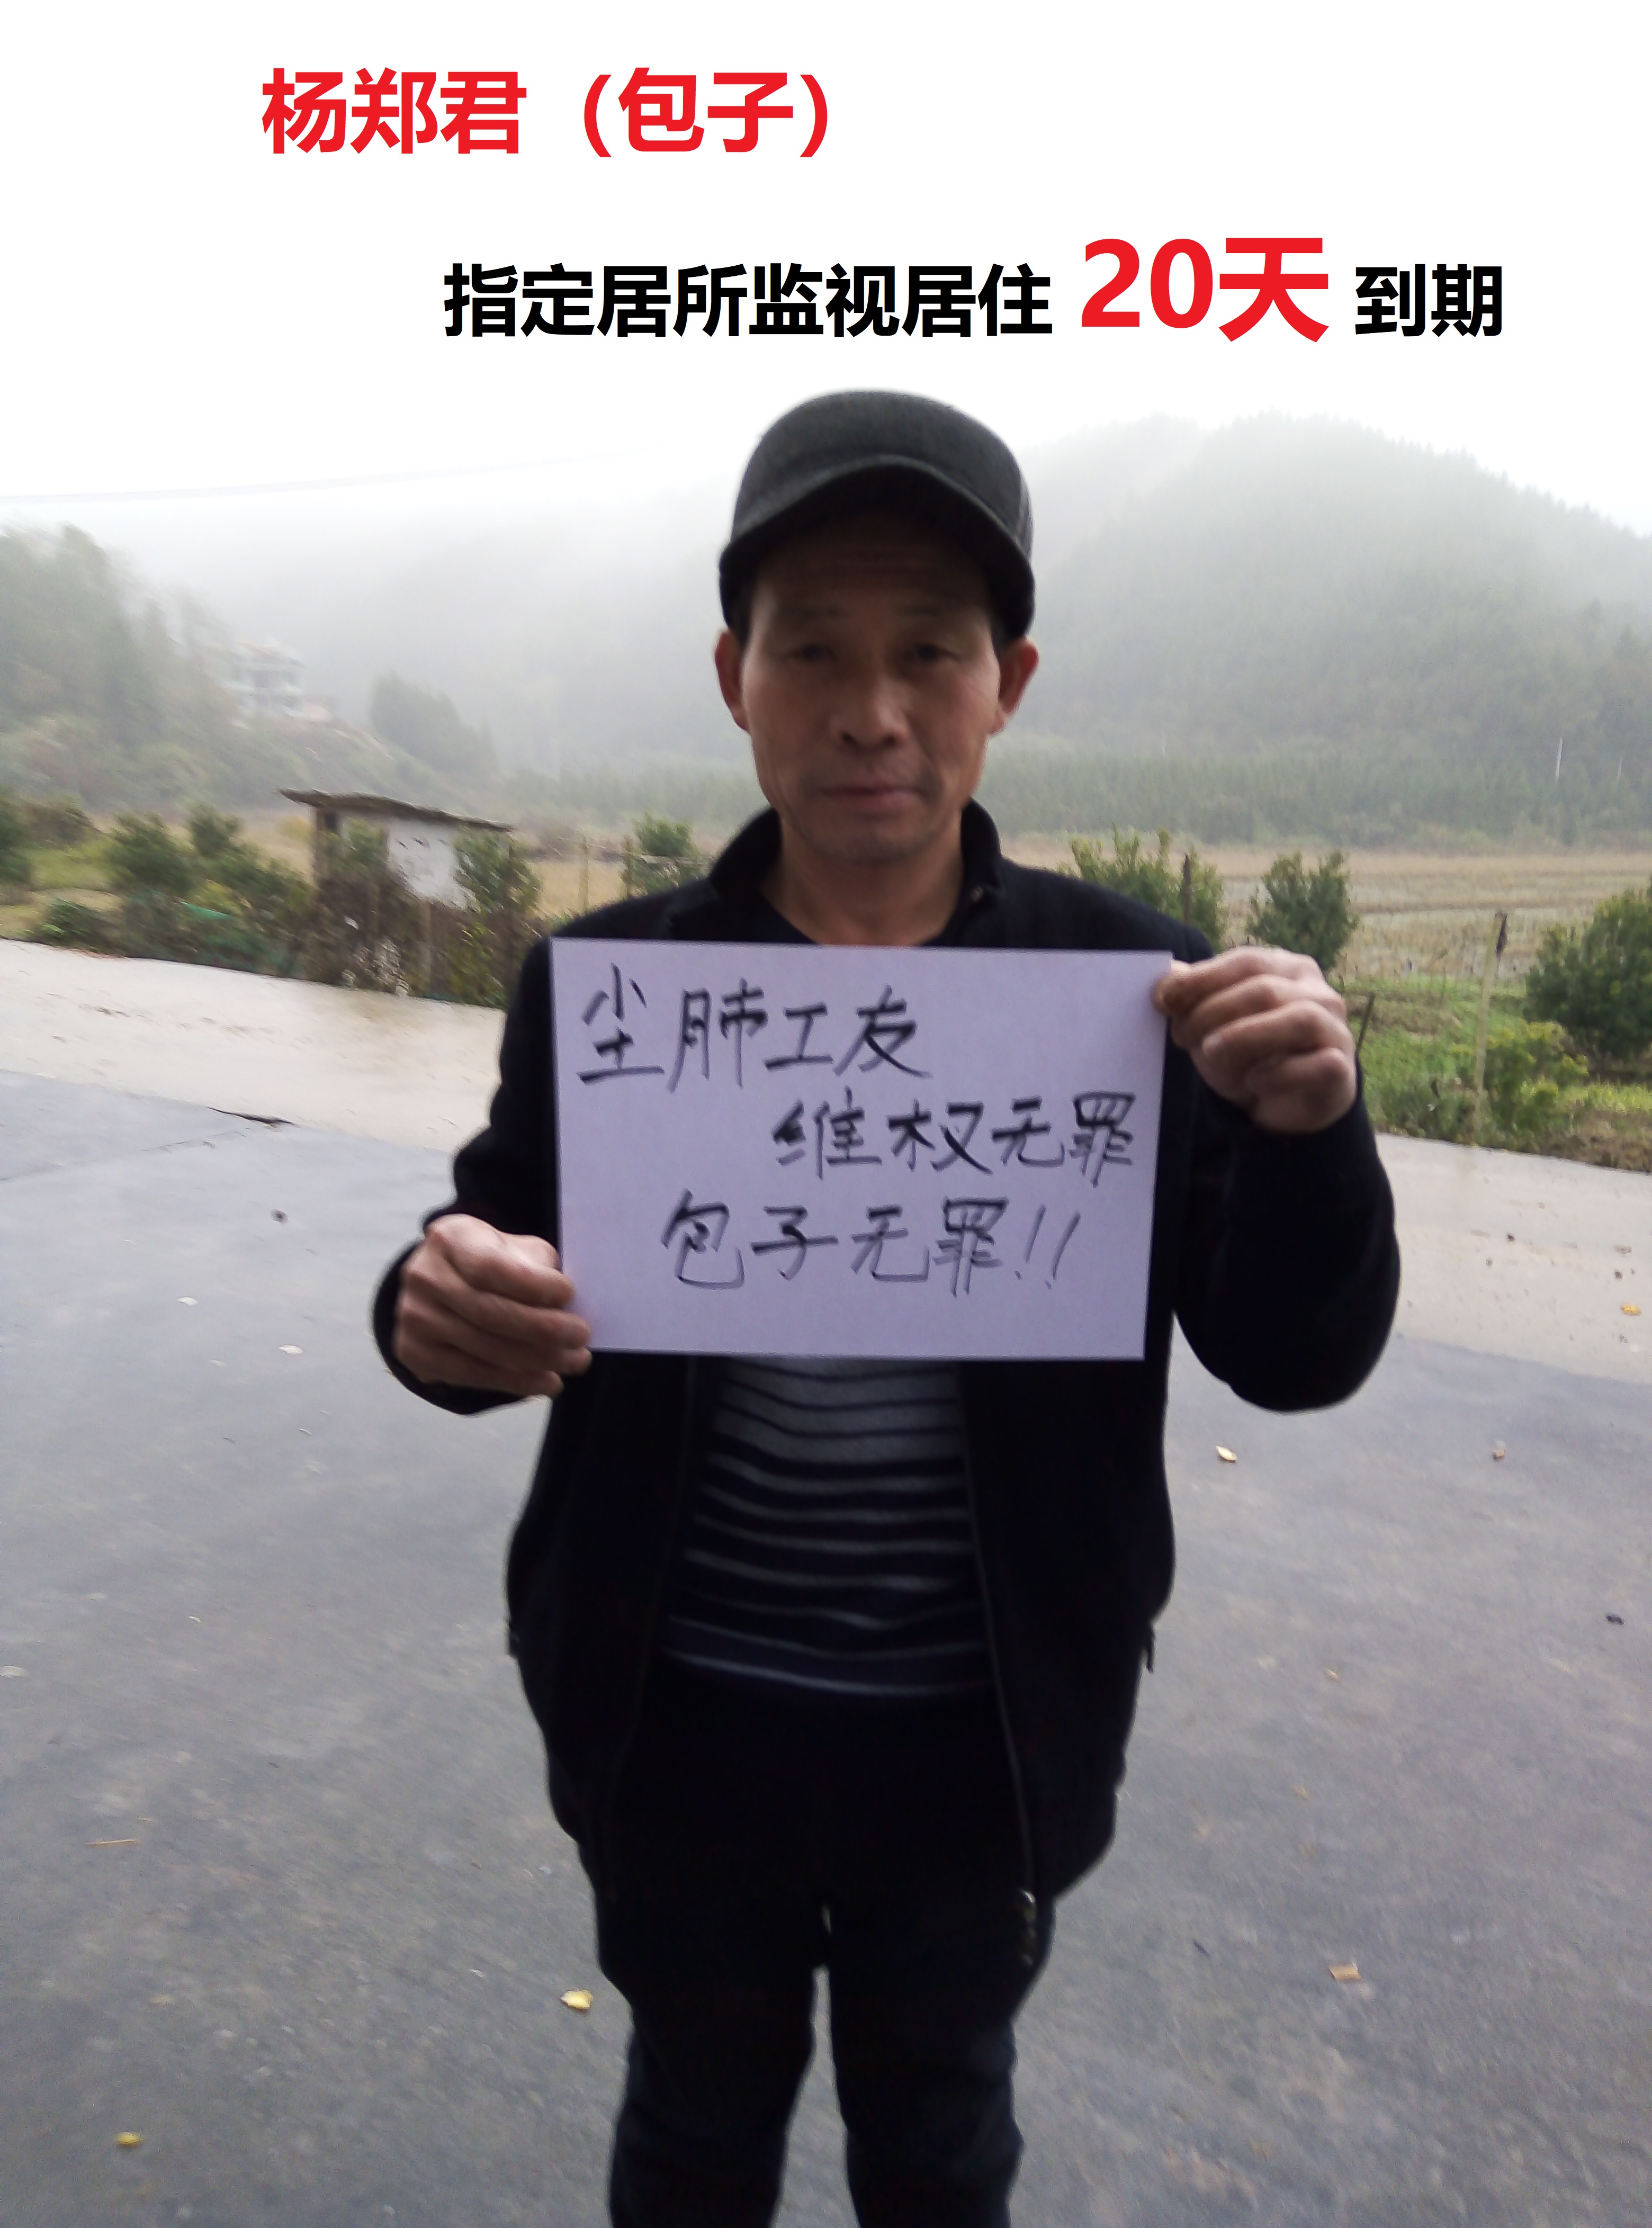 杨郑君（包子）
指定居所监视居住 20天 到期
尘肺工友
维权无罪
包子无罪!!